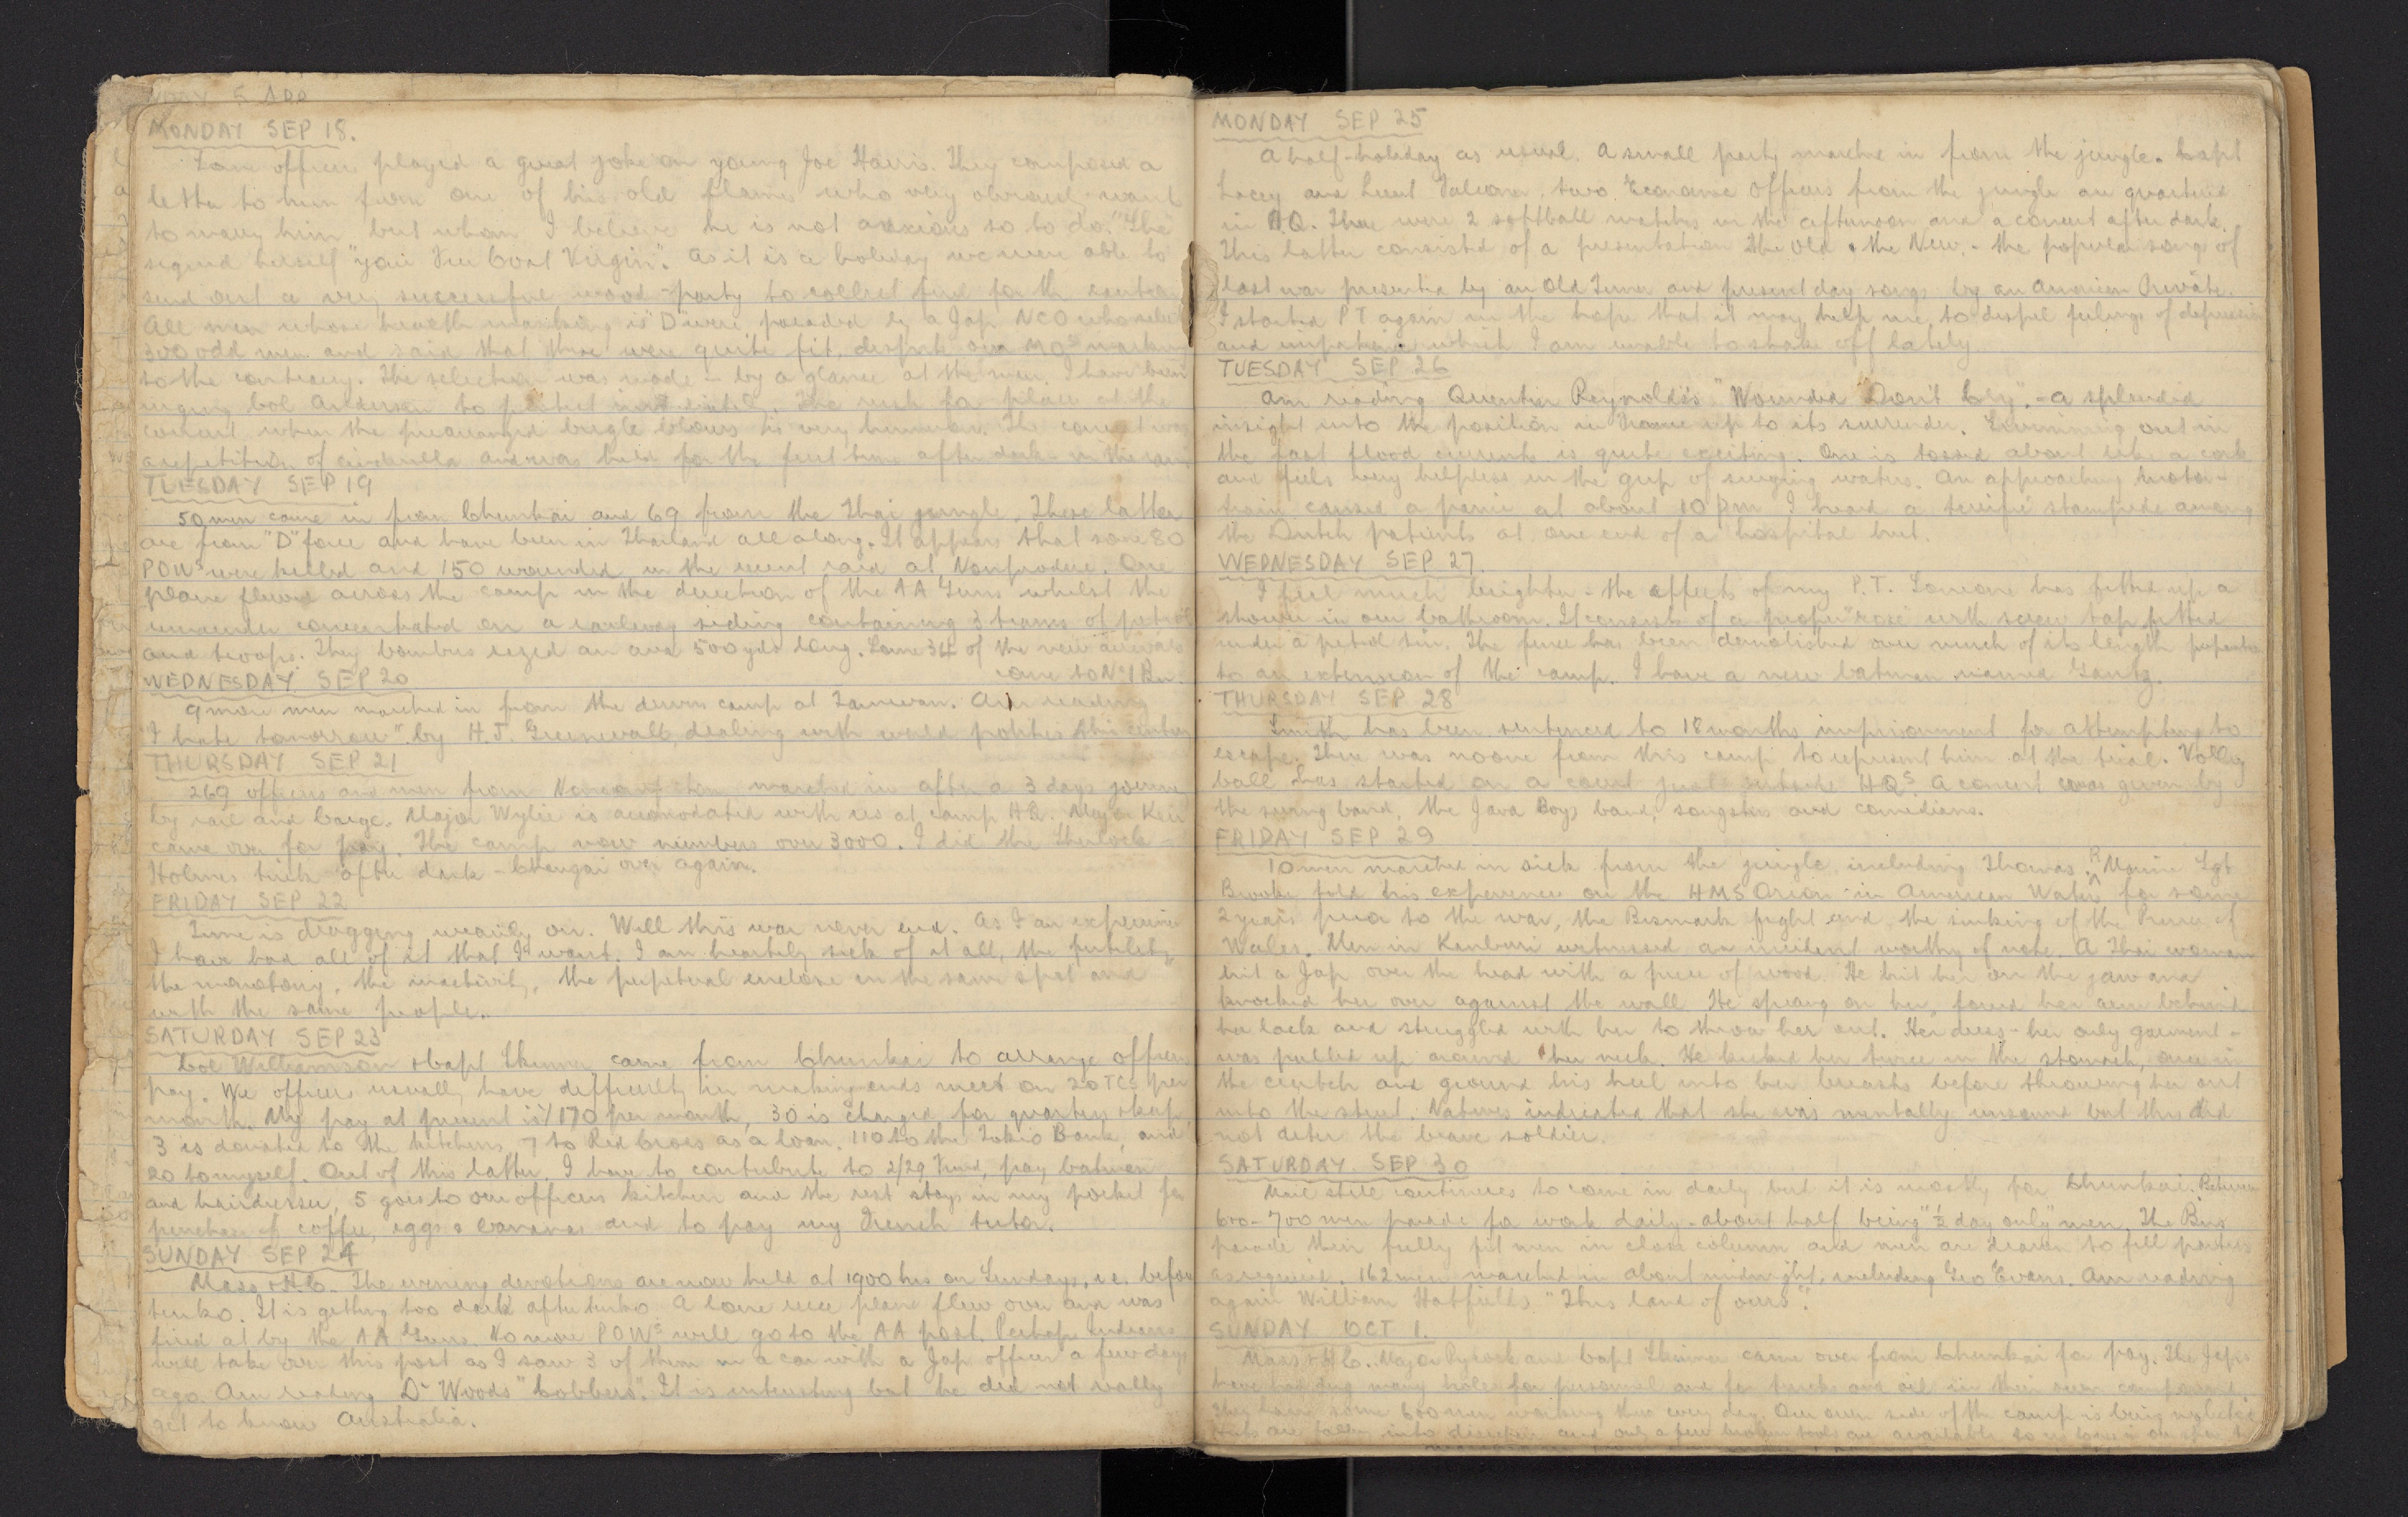 MONDAY SEP 18.
Some officers played a great joke on young Joe Harris. They composed a
letter to him from one of his old flames who very obviously want
to marry him but whom I believe he is not anxious so to do. "She"
signed herself "your True Virgin". As it is a holiday we were able to
send out a very successful wood-party to collect fuel for the
All men whose health marking is "D" were paraded by a Jap NCO who
300 odd men and said that these were quite fit, despite our MOs marking
to the contrary. The selection was made - by a glance at the men. I have been
urging Col Anderson to protest. The rush for places at the
concert when the prearranged bugle blows is very humorous. The concert was
a repetition of Cinderella and was held for the first time after dark - in the
TUESDAY SEP 19
50 men came in from Chunkai and 69 from the Thai jungle. These latter
are from "D" force and have been in Thailand all along. It appears that some 80
POWs were killed and 150 wounded in the recent raid at Nonproduc. One
plane flew across the camp in the direction of the AA Guns whilst the
remainder concentrated on a railway siding containing 3 trains of petrol
and troops. They bombed an area 500 yds long. Some 34 of the new arrivals
came to No 1 Bn.
WEDNESDAY SEP 20
9 more men marched in from the down camp at Tamuan. Am reading
"I hate tomorrow" by H.J. Greenwall, dealing with world politics this century
THURSDAY SEP 21
269 officers and men from marched in after a 3 days journey
by rail and barge. Major Wylie is accomodated with us at camp HQ. Major Kerr
came over for pay. The camp now numbers over 3000. I did the Sherlock -
Holmes trick after dark - Changai over again.
FRIDAY SEP 22
Time is dragging wearily on. Will this war never end. As for experience
I have had all of it that I want. I am heartily sick of it all, the futility,
the monotony, the inactivity, the perpetual in the same spot and
with the same people.
SATURDAY SEP 23
Col Williamson & Capt Skinner came from Chunkai to arrange officers
pay. We officers usually have difficulty in making ends meet on 20 TCs per
month. My pay at present is 170 per month, 30 is charged for quarters & keep
3 is donated to the kitchens, 7 to Red Cross as a loan, 110 to the Tokio Bank, and
20 to myself. Out of this latter, I have to contribute to 2/29 Fund, pay batman
and hairdresser, 5 goes to our officers kitchen and the rest stays in my pocket for
purchase of coffee, eggs & bananas and to pay my French tutor.
SUNDAY SEP 24
Mass & H.C. The evening devotions are now held at 1900 hrs on Sundays, i.e. before
tenko. It is getting too dark after tenko. A lone recce plane flew over and was
fired at by the AA Guns. No more POWs will go to the AA post. Perhaps Indians
will take over this post as I saw 3 of them in a car with a Jap officer a few days
ago. Am reading Dr Woods "Cobbers". It is interesting but he did not really
get to know Australia.
MONDAY SEP 25
A half-holiday as usual. A small party marched in from the jungle. Capt
Lacey and Lieut, two Economic Officers from the jungle are quartered
in HQ. There were 2 softball matches in the afternoon and a concert after dark.
This latter consisted of a presentation The Old & the New. - the popular songs of
last war presented by an Old Timer and present day songs by an American Private.
I started PT again in the hope that it may help me to dispel feelings of depression
and impatience which I am unable to shake off lately
TUESDAY SEP 26
Am reading Quentin Reynolds's "Wounded Don't Cry". - a splendid
insight into the position in France up to its surrender. Swimming out in
the fast flood currents is quite exciting. One is tossed about like a cork
and feels very helpless in the grip of surging waters. An approaching motor-
train caused a panic at about 10 pm. I heard a terrific stampede among
the Dutch patients at one end of a hospital hut.
WEDNESDAY SEP 27.
I feel much brighter - the effects of my P.T. Someone has fitted up a
shower in our bathroom. It consists of a proper "rose" with screw tap fitted
under a petrol tin. The fence has been demolished over much of its length preparatory
to an extension of the camp. I have a new batman named Gantz.
THURSDAY SEP 28
Smith has been sentenced to 18 months imprisonment for attempting to
escape. There was noone from this camp to represent him at the trial. Volley
ball has started on a court just outside HQs. A concert was given by
the swing band, the Java Boys band, songsters and comedians.
FRIDAY SEP 29
10 men marched in sick from the jungle, including Thomas. R Marine Sgt
Brooke told his experiences on the HMS Orion - in American Waters for some
2 years prior to the war, the Bismark fight and the sinking of the Prince of
Wales. Men in Kanburi witnessed an incident worthy of note. A Thai woman
hit a Jap over the head with a piece of wood. He hit her on the jaw and
knocked her over against the wall. He sprang on her, forced her arm behind
her back and struggled with her to throw her out. Her dress - her only garment -
was pulled up around her neck. He kicked her twice in the stomach, once in
the crutch and ground his heel into her breasts before throwing her out
into the street. Natives indicated that she was mentally unsound but this did
not deter the brave soldier.
SATURDAY. SEP 30
Mail still continues to come in daily but it is mostly for Chunkai. Between
600-700 men parade for work daily - about half being "½ day only" men. The Bns
parade their fully fit men in close column and men are drawn to fill parties
as required. 162 men marched in about midnight, including Geo Evans. Am reading
again William Hatfields "This land of ours".
SUNDAY OCT 1.
Mass & H.C. Major Pycock and Capt Skinner came over from Chunkai for pay. The Japs
have had dug many holes for personnel and for trucks and oil in their own compound.
They have some 600 men working there every day. Our own side of the camp is being neglected
Huts are falling into disrepair and only a few broken tools are available